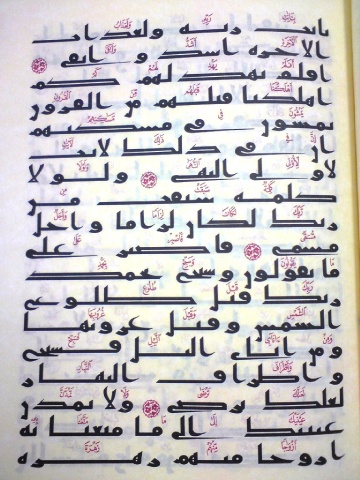 بايت ربه ولعذاب
الاخره اشد وابقى
افلم يهد لهم كم
اهلكنا قبلهم من القرون
يمشون في مسكنهم
ان في ذلك لايت
لاولي النهى ولولا
كلمه سبقت من
ربك لكان لزاما واجل
مسمى فاصبر على
ما يقولون وسبح بحمد
ربك قبل طلوع
الشمس وقبل غروبها
ومن اناى اليل فسبح
واطراف النهار
لعلك ترضى ولا تمدن
عينيك الى ما متعنا به
ازوجا منهم زهره